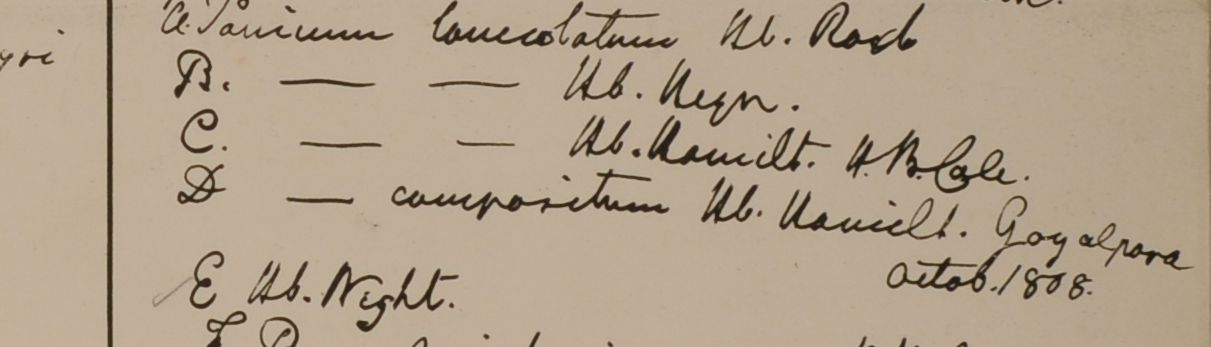 a. Panicum lanceolatum Hb. Roxb
B. — — Hb. Heyn.
C. — — Hb. Hamilt. H. B. Calc.
D — compositum Hb. Hamilt. Goyalpara
Octob. 1808.
E Hb. Wight.
F